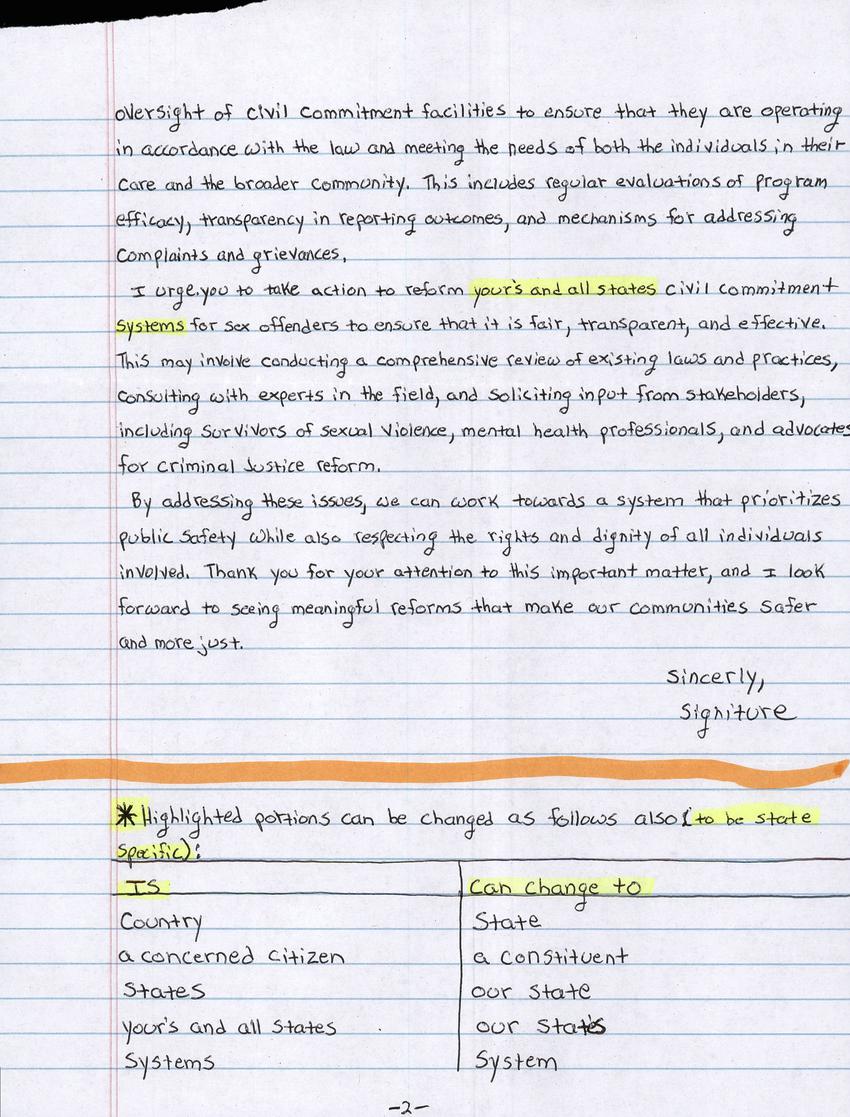 oversight of civil commitment facilities to ensure that they are operating
in accordance with the law and meeting the needs of both the individuals in their
care and the broader community. This includes regular evaluations of program
efficacy, transparency in reporting outcomes, and mechanisms for addressing
complaints and grievances.
I urge you to take action to reform your's and all states civil commitment
systems for sex offenders to ensure that it is fair, transparent, and effective.
This may involve conducting a comprehensive review of existing laws and practices,
consulting with experts in the field, and soliciting input from stakeholders,
including survivors of sexual violence, mental health professionals, and advocates
for criminal Justice reform.
By addressing these issues, we can work towards a system that prioritizes
public safety while also respecting the rights and dignity of all individuals
involved. Thank you for your attention to this important matter, and I look
forward to seeing meaningful reforms that make our communities safer
and more just.
Sincerly,
Signiture
*Highlighted portions can be changed as follows also (to be state
specific):
IS Can change to
Country State
a concerned citizen a constituent
States our state
your's and all states our state's
Systems System
-2-